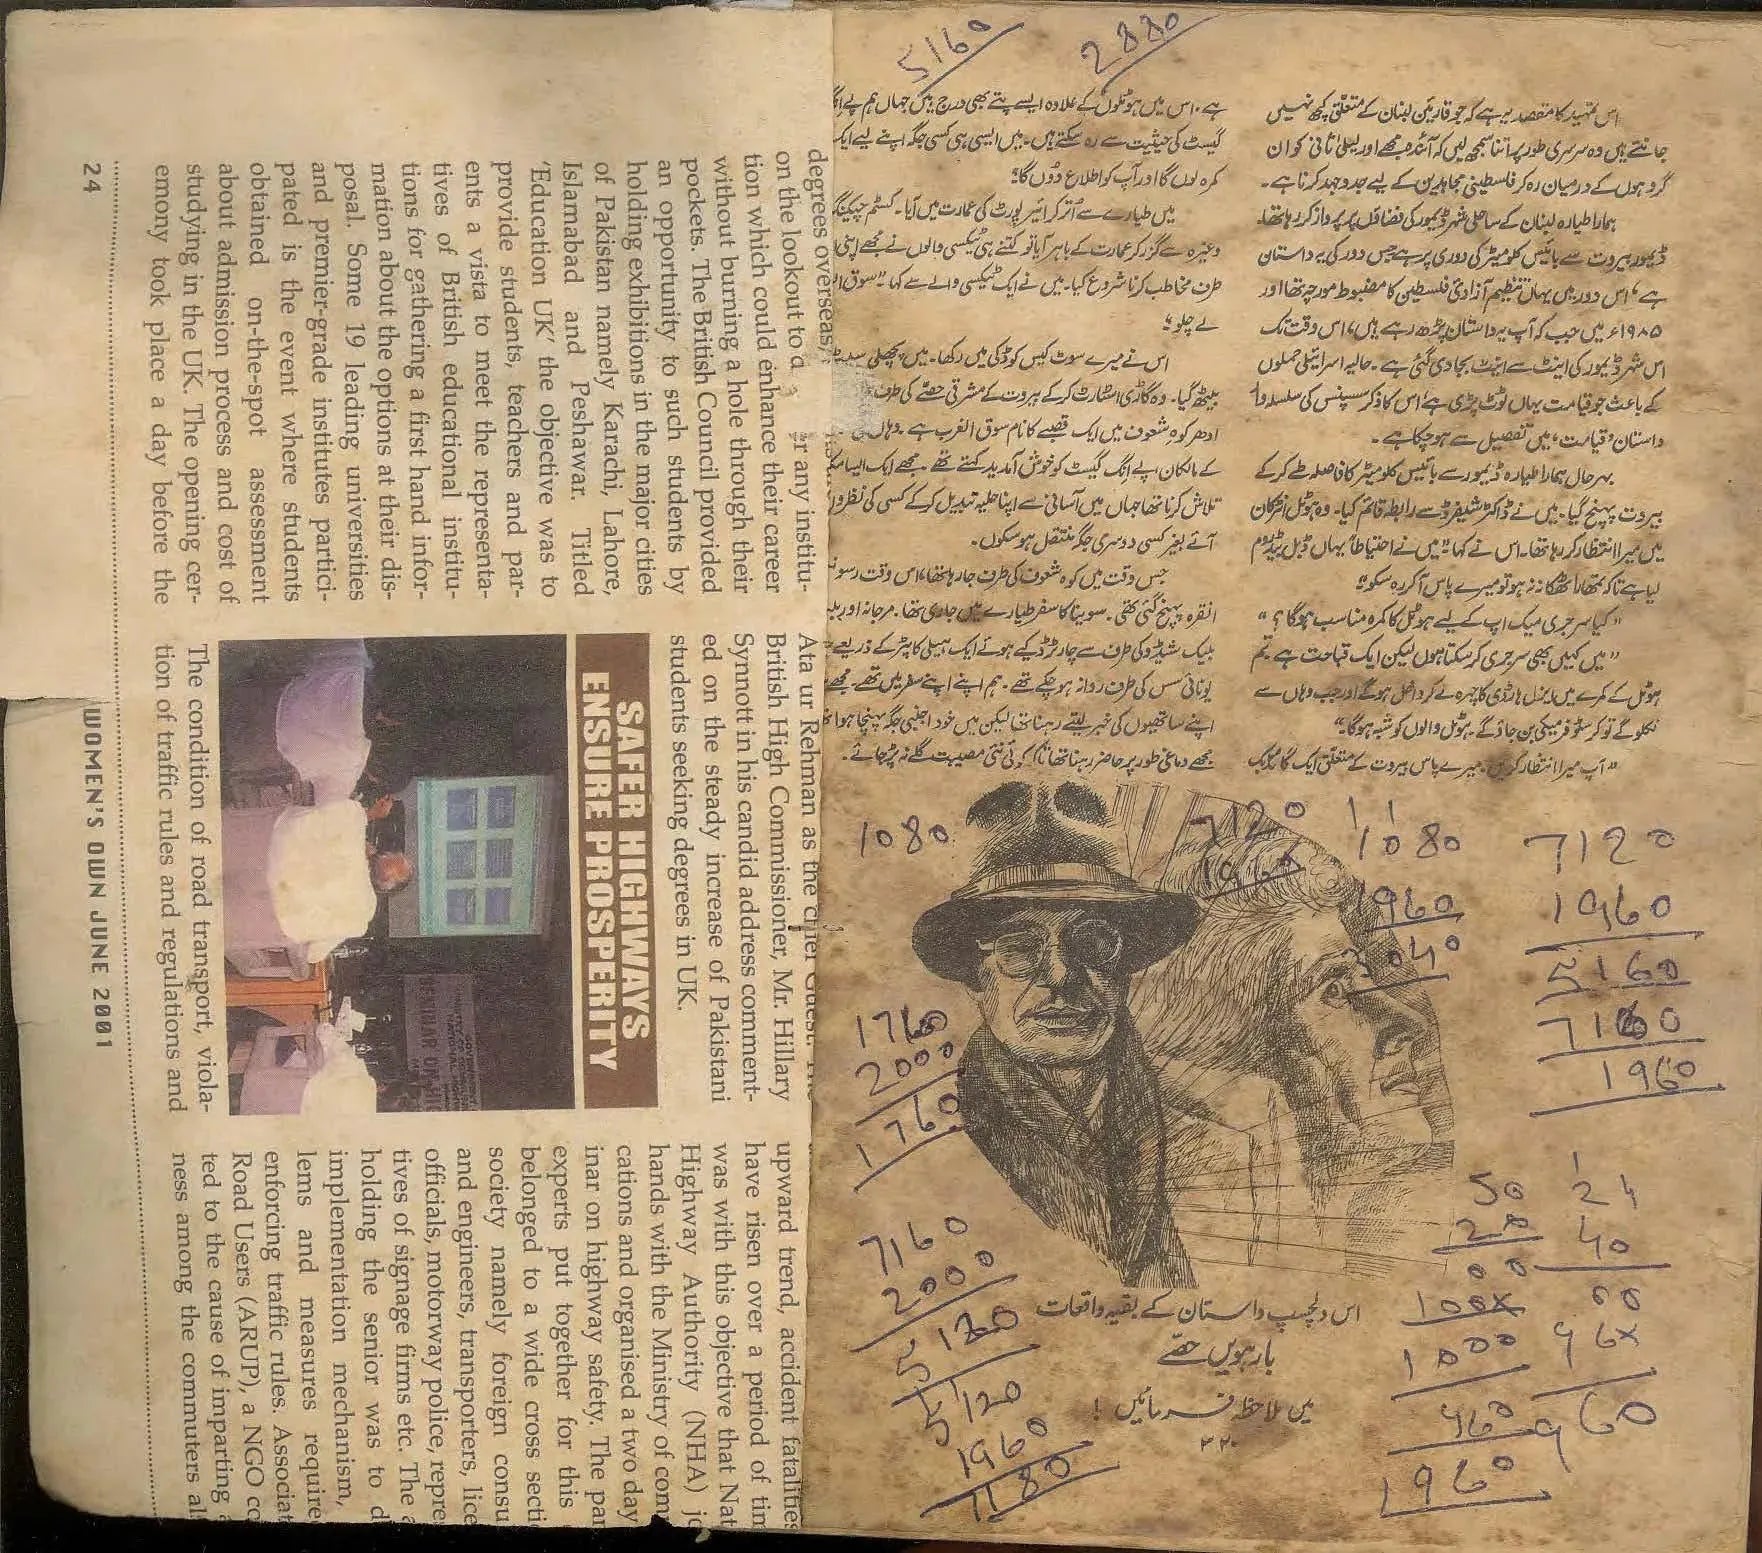 5160
2880
اس تمہید کا مقصد یہ ہے کہ جو قارئین لبنان کے متعلق کچھ نہیں
جانتے ہیں وہ سرسری طور پر اتنا سمجھ لیں کہ آئندہ مجھے اور لیلیٰ ثانی کو ان
گروہوں کے درمیان رہ کر فلسطینی مجاہدین کے لیے جدوجہد کرنا ہے۔
ہمارا طیارہ لبنان کے ساحلی شہر ڈیمور کی فضاؤں پر پرواز کر رہا تھا۔
ڈیمور بیروت سے بائیس کلومیٹر کی دوری پر ہے جس دور کی یہ داستان
ہے، اس دور میں یہاں تنظیم آزادیٔ فلسطین کا مضبوط مورچہ تھا اور
۱۹۸۵ء میں جب کہ آپ یہ داستان پڑھ رہے ہیں، اس وقت تک
اس شہر ڈیمور کی اینٹ سے اینٹ بجا دی گئی ہے۔ حالیہ اسرائیلی حملوں
کے باعث جو قیامت یہاں ٹوٹ پڑی ہے اس کا ذکر سسپنس کی سلسلہ وار
داستان "قیامت" میں تفصیل سے ہو چکا ہے۔
بہرحال ہمارا طیارہ ڈیمور سے بائیس کلومیٹر کا فاصلہ طے کر کے
بیروت پہنچ گیا۔ میں نے ڈاکٹر شیفرڈ سے رابطہ قائم کیا۔ وہ ہوٹل
میں میرا انتظار کر رہا تھا۔ اس نے کہا "میں نے احتیاطاً یہاں ڈبل بیڈ روم
لیا ہے تاکہ تمھارا ٹھکانہ نہ ہو تو میرے پاس آ کر رہ سکو۔"
"کیا سرجری میک اپ کے لیے ہوٹل کا کمرہ مناسب ہوگا؟"
"میں کہیں بھی سرجری کر سکتا ہوں لیکن ایک قباحت ہے تم
ہوٹل کے کمرے میں ہارڈی کا چہرہ لے کر داخل ہو گے اور جب وہاں سے
نکلو گے تو بن جاؤ گے۔ ہوٹل والوں کو شبہ ہوگا۔"
"آپ میرا انتظار کریں۔ میرے پاس بیروت کے متعلق ایک گائڈ بک
ہے۔ اس میں ہوٹلوں کے علاوہ ایسے پتے بھی درج ہیں جہاں ہم پے انگ
گیسٹ کی حیثیت سے رہ سکتے ہیں۔ میں ایسی ہی کسی جگہ اپنے لیے ایک
کمرہ لوں گا اور آپ کو اطلاع دوں گا۔"
میں طیارے سے اُتر کر ایئرپورٹ کی عمارت میں آیا۔ کسٹم چیکنگ
وغیرہ سے گزر کر عمارت کے باہر آیا تو کتنے ہی ٹیکسی والوں نے مجھے اپنی
طرف مخاطب کرنا شروع کیا۔ میں نے ایک ٹیکسی والے سے کہا "سوق ال
لے چلو۔"
اس نے میرے سوٹ کیس کو ڈکی میں رکھا۔ میں پچھلی سیٹ
بیٹھ گیا۔ وہ گاڑی اسٹارٹ کر کے بیروت کے مشرقی حصّے کی طرف
ادھر کوہ شعوف میں ایک قصبے کا نام سوق الغرب ہے۔ وہاں
کے مالکان پے انگ گیسٹ کو خوش آمدید کہتے تھے۔ مجھے ایک ایسا
تلاش کرنا تھا جہاں میں آسانی سے اپنا حلیہ تبدیل کر کے کسی کی نظروں
آئے بغیر کسی دوسری جگہ منتقل ہو سکوں۔
جس وقت میں کوہ شعوف کی طرف جا رہا تھا، اس وقت رسونتی
انقرہ پہنچ گئی تھی۔ سونیا کا سفر طیارے میں جاری تھا۔ مرجانہ اور
بلیک شیڈو کی طرف سے چارٹرڈ کیے ہوئے ایک ہیلی کاپٹر کے ذریعے
کی طرف روانہ ہو چکے تھے۔ ہم اپنے اپنے سفر میں تھے۔ مجھے
اپنے ساتھیوں کی خبر لیتے رہنا تھا لیکن میں خود اجنبی جگہ پہنچا ہوا تھا
مجھے دماغی طور پر حاضر رہنا تھا تاکہ کوئی نئی مصیبت گلے نہ پڑ جائے۔
1080
7120
1960
1 1
1080
1960
3040
7120
1960
5160
7160
1960
1760
2000
1760
7160
2000
5160
5120
1960
7180
50
20
00
100x
1000
960
1960
1
24
40
00
96x
960
اس دلچسپ داستان کے بقیہ واقعات
بارہویں حصّے
میں ملاحظہ فرمائیں!
۲۲۰
degrees overseas,
on the lookout to any institu-
tion which could enhance their career
without burning a hole through their
pockets. The British Council provided
an opportunity to such students by
holding exhibitions in the major cities
of Pakistan namely Karachi, Lahore,
Islamabad and Peshawar. Titled
'Education UK' the objective was to
provide students, teachers and par-
ents a vista to meet the representa-
tives of British educational institu-
tions for gathering a first hand infor-
mation about the options at their dis-
posal. Some 19 leading universities
and premier-grade institutes partici-
pated is the event where students
obtained on-the-spot assessment
about admission process and cost of
studying in the UK. The opening cer-
emony took place a day before the
Ata ur Rehman as the chief Guest. The
British High Commissioner, Mr. Hillary
Synnott in his candid address comment-
ed on the steady increase of Pakistani
students seeking degrees in UK.
SAFER HIGHWAYS
ENSURE PROSPERITY
SEMINAR ON HIG
The condition of road transport, viola-
tion of traffic rules and regulations and
upward trend, accident fatalities
have risen over a period of tim
was with this objective that Nat
Highway Authority (NHA) jo
hands with the Ministry of com
cations and organised a two day
inar on highway safety. The par
experts put together for this
belonged to a wide cross secti
society namely foreign consu
and engineers, transporters, lice
officials, motorway police, repre
tives of signage firms etc. The a
holding the senior was to di
implementation mechanism,
lems and measures require
enforcing traffic rules. Associat
Road Users (ARUP), a NGO co
ted to the cause of imparting a
ness among the commuters al
24
WOMEN'S OWN JUNE 2001